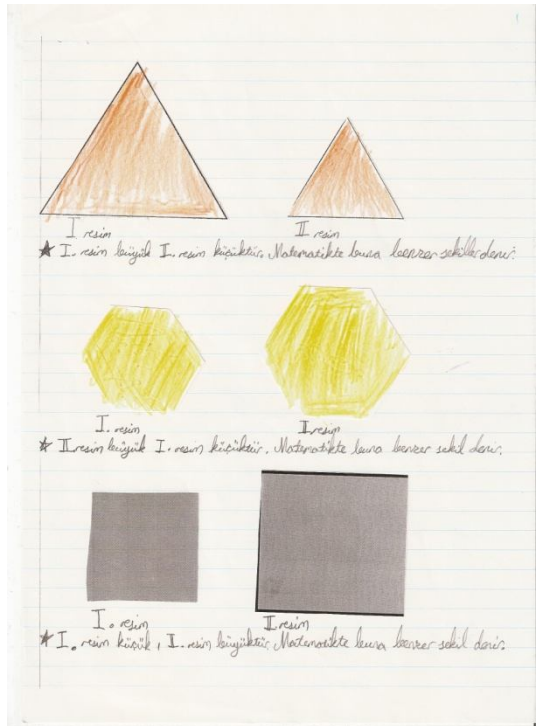 I resim II resim
★ I. resim büyük II. resim küçüktür. Matematikte buna benzer şekiller denir.
I. resim II. resim
★ II. resim büyük I. resim küçüktür. Matematikte buna benzer şekil denir.
I. resim II. resim
★ I. resim küçük, II. resim büyüktür. Matematikte buna benzer şekil denir.